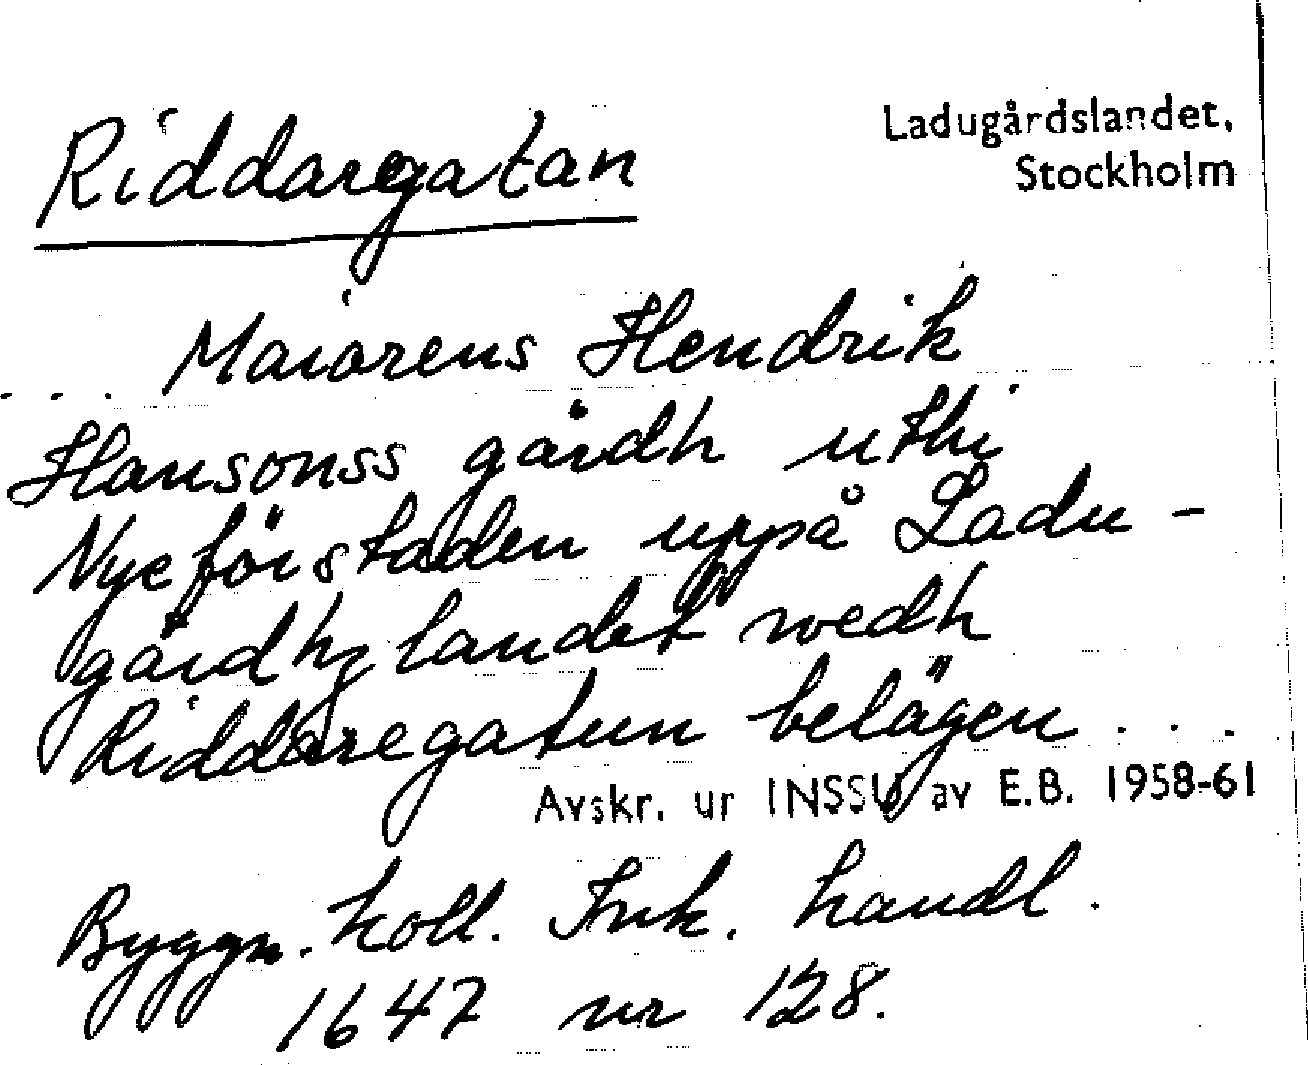 Riddargatan
Ladugårdslandet,
Stockholm
... Maiorens Hendrik
Hansonss gårdh uthi
Nyeförstaden uppå Ladu-
gårdhzlandet wedh
Riddaregatun belägen...
Avskr. ur INSSU av E.B. 1958-61
Byggn. koll. Ink. handl.
1647 nr 128.